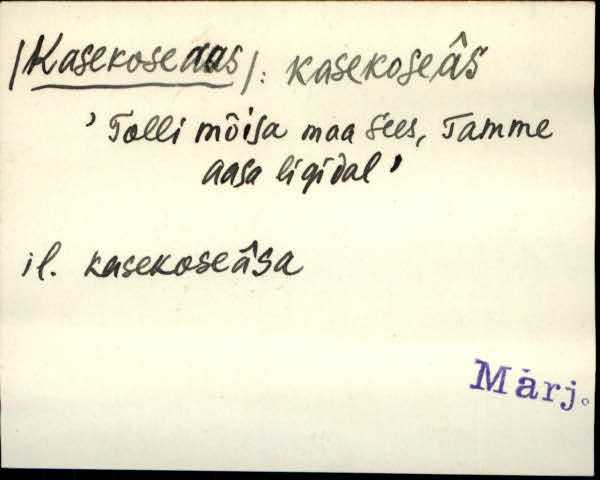 /Kasekoseaas/: kasekoseâs
’Tolli mõisa maa sees, Tamme
aasa ligidal’
il. kasekoseâsa
Märj.